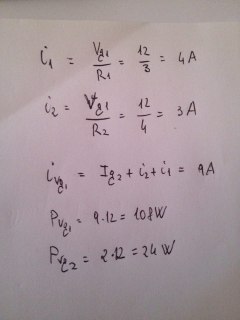 i₁ = Vg1/R₁ = 12/3 = 4A
i₂ = Vg1/R₂ = 12/4 = 3A
iVg1 = Ig2 + i₂ + i₁ = 9A
PVg1 = 9·12 = 108W
PVg2 = 2·12 = 24W